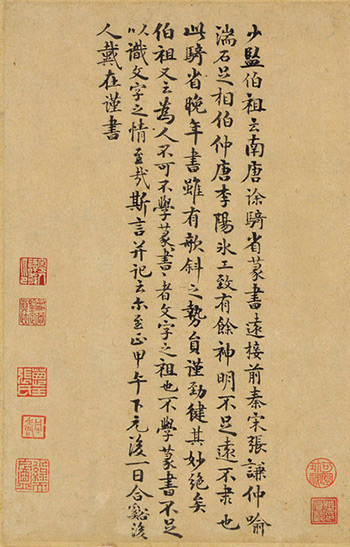 少監伯祖云南唐徐騎省篆書遠接前秦宋張謙仲喻
湍石足相伯仲唐李陽冰工致有餘神明不足遠不隶也
此騎省晚年書雖有欹斜之勢謹勁健其妙絶矣
伯祖又云為人不可不學篆書〻者文字之祖也不學篆書不足
以識文字之情至哉斯言并記云尒至正甲午下元後一日合谿後
人戴在謹書